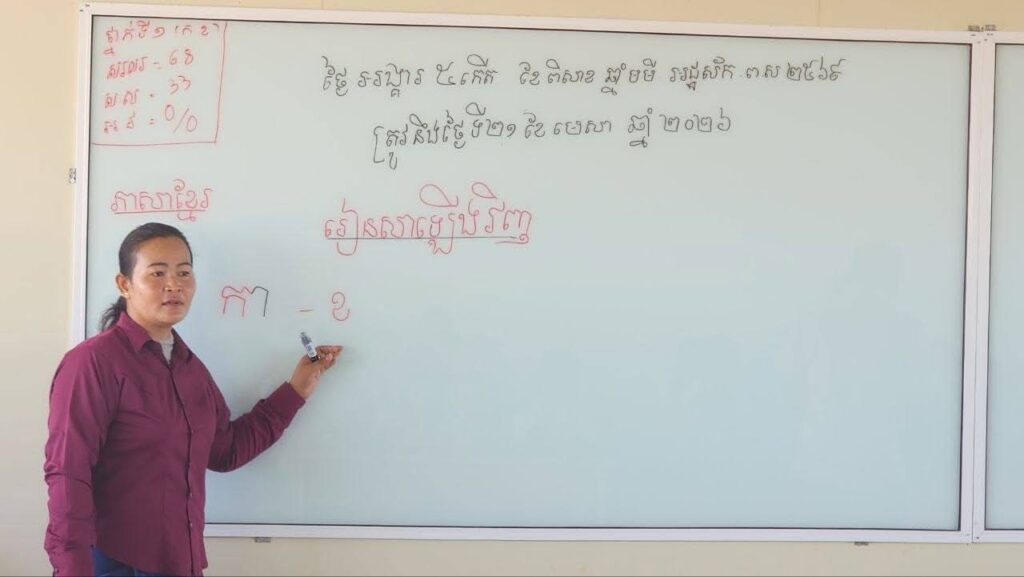 ថ្នាក់ទី១ (ក ខ)
សរុប = 68
ស ស = 33
អ ជ = 0/0
ថ្ងៃ អង្គារ ៥កើត ខែ ពិសាខ ឆ្នាំ មមី អដ្ឋស័ក ព.ស ២៥៦៩
ត្រូវនឹងថ្ងៃទី២១ ខែ មេសា ឆ្នាំ ២០២៦
ភាសាខ្មែរ
រៀនសាឡើងវិញ
កា - ខ